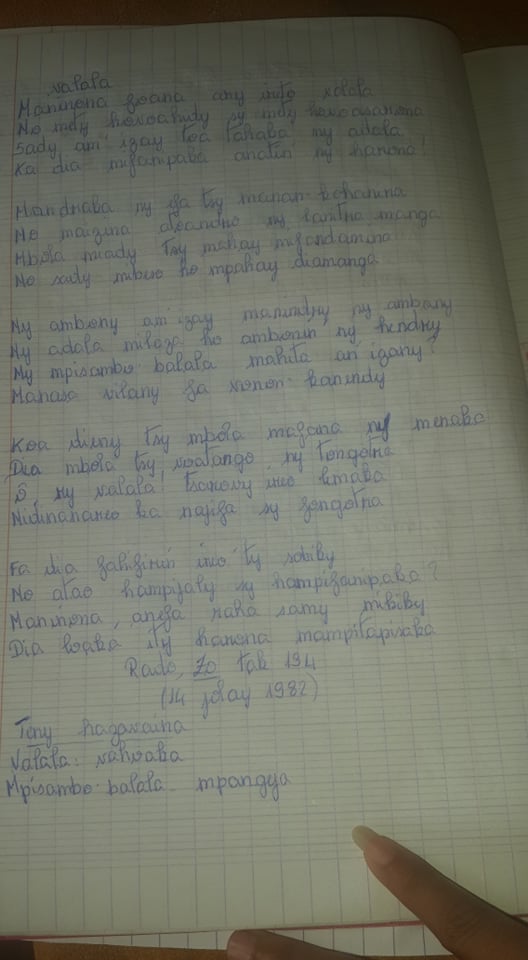 valala
Maninona foana any indo valala
No mdy hovoahidy sy mdy hovoasarona
Sady am' izay toa tahaka ny adala
Ka dia mifanipaka anatin' ny hanona!
Mandraka ny ifa tsy manan-kohanina
No maizina atoandro ny lanitra manga
Mbola miady tsy mahay mifandamina
No sady mikiso ho mpahay diamanga
Ny ambony am izay manindry ny ambany
Ny adala mihoza ho ambonin' ny hendry
Ny mpisambo-balala mahita an' izany!
Manasa vilany fa vonon-kanendy
Koa dieny tsy mbola mafana ny menaka
Dia mbola tsy voatango ny tongotra
Ô, ry valala! tsarovy ireo lenaka
Nidinanareo ka najifa sy fongotra
Fa dia fahifirin' inio ity sobiky
No atao hampijaly sy hampifanipaka?
Maninona, anga raha samy mikiky
Dia loaka ity harona mampitapisaka
Rado, Zo tak 194
(14 jolay 1982)
Teny hazavaina
Valala: vahoaka
Mpisambo-balala - mpangeja